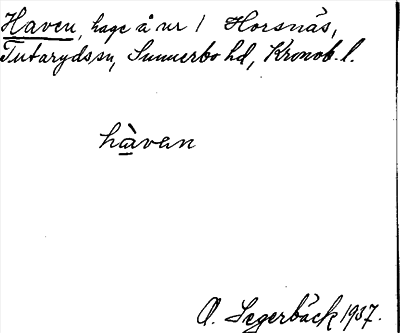 Haven, hage å nr 1 Horsnäs,
Tutarydssn, Sunnerbo hd, Kronob. l.
hàvan
O. Segerbäck 1937.